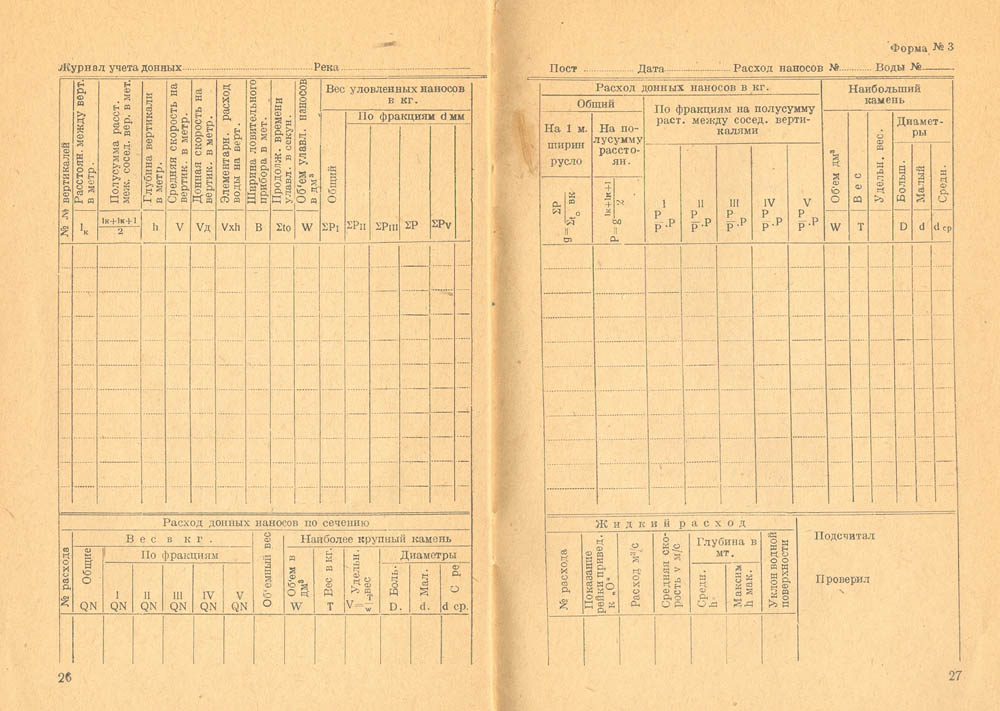 Журнал учета данных Река
№ № вертикалей
Расстоян. между верт.
в метр.
Полусумма расст.
меж. сосед. вер. в мет.
Глубина вертикали
в метр.
Средняя скорость на
вертик. в метр.
Донная скорость на
вертик. в метр.
Элементарн. расход
воды на верт.
Ширина ловительного
прибора в мет.
Продолж. времени
улавл. в секун.
Об'ем улавл. наносов
в дм³
Вес уловленных наносов
в кг.
Общий
По фракциям d мм
lк
lк+lк+1
2
h
V
Vд
Vxh
B
Σto
W
ΣPI
ΣPII
ΣPIII
ΣP
ΣPV
Расход донных наносов по сечению
№ расхода
Вес в кг.
Общие
QN
По фракциям
I
QN
II
QN
III
QN
IV
QN
V
QN
Об'емный вес
Наиболее крупный камень
Об'ем в
дм³
W
Вес в кг.
T
Удельн.
вес
Диаметры
Боль.
D.
Мал.
d.
С ре
d ср.
26
Форма № 3
Пост Дата Расход наносов № Воды №
Расход донных наносов в кг.
Общий
На 1 м.
ширин
русло
На по-
лусумму
рассто-
ян.
По фракциям на полусумму
раст. между сосед. верти-
калями
I
P
P .P
II
P
P .P
III
P
P .P
IV
P
P .P
V
P
P .P
Наибольший
камень
Об'ем дм³
W
Вес
T
Удельн. вес.
Диамет-
ры
Больш.
D
Малый
d
Средн.
d ср
Жидкий расход
№ расхода
Показание
рейки привед.
к „О"
Расход м³/с
Средняя ско-
рость v м/с
Глубина в
мт.
Средн.
h
Максим
h мак.
Уклон водной
поверхности
Подсчитал
Проверил
27